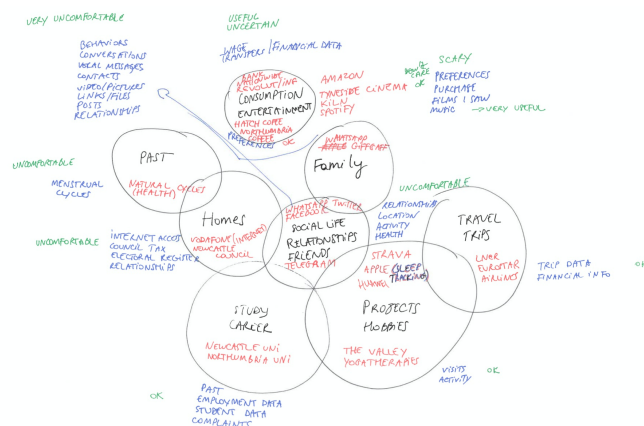 VERY UNCOMFORTABLE
BEHAVIORS
CONVERSATIONS
VOCAL MESSAGES
CONTACTS
VIDEO/PICTURES
LINKS/FILES
POSTS
RELATIONSHIPS
USEFUL
UNCERTAIN
WAGE
TRANSFERS/FINANCIAL DATA
BANK
NATIONWIDE
REVOLUT/ING
CONSUMPTION
ENTERTAINMENT
HATCH COFEE
NORTHUMBRIA
COFFEE
PREFERENCES
OK
AMAZON
TYNESIDE CINEMA
KILN
SPOTIFY
DON'T
CARE
OK
SCARY
PREFERENCES
PURCHASE
FILMS I SAW
MUSIC → VERY USEFUL
PAST
NATURAL CYCLES
(HEALTH)
UNCOMFORTABLE
MENSTRUAL
CYCLES
WHATSAPP
GIFFGAFF
Family
UNCOMFORTABLE
Homes
VODAFONE (INTERNET)
NEWCASTLE
COUNCIL
UNCOMFORTABLE
INTERNET ACCESS
COUNCIL TAX
ELECTORAL REGISTER
RELATIONSHIPS
WHATSAPP TWITTER
FACEBOOK
SOCIAL LIFE
RELATIONSHIPS
FRIENDS
TELEGRAM
RELATIONSHIPS
LOCATION
ACTIVITY
HEALTH
TRAVEL
TRIPS
LNER
EUROSTAR
AIRLINES
TRIP DATA
FINANCIAL INFO
OK
STRAVA
APPLE (SLEEP
TRACKING)
HUAWEI
PROJECTS
HOBBIES
THE VALLEY
YOGATHERAPIES
VISITS
ACTIVITY
OK
STUDY
CAREER
NEWCASTLE UNI
NORTHUMBRIA UNI
OK
PAST
EMPLOYMENT DATA
STUDENT DATA
COMPLAINTS